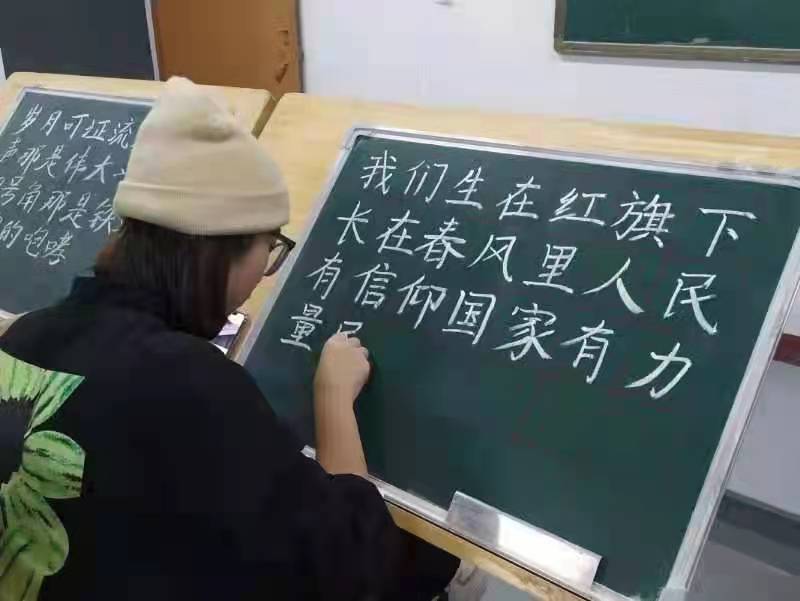 岁月叮证流
声那是伟大
号角那是铁
的咆哮
我们生在红旗下
长在春风里人民
有信仰国家有力
量